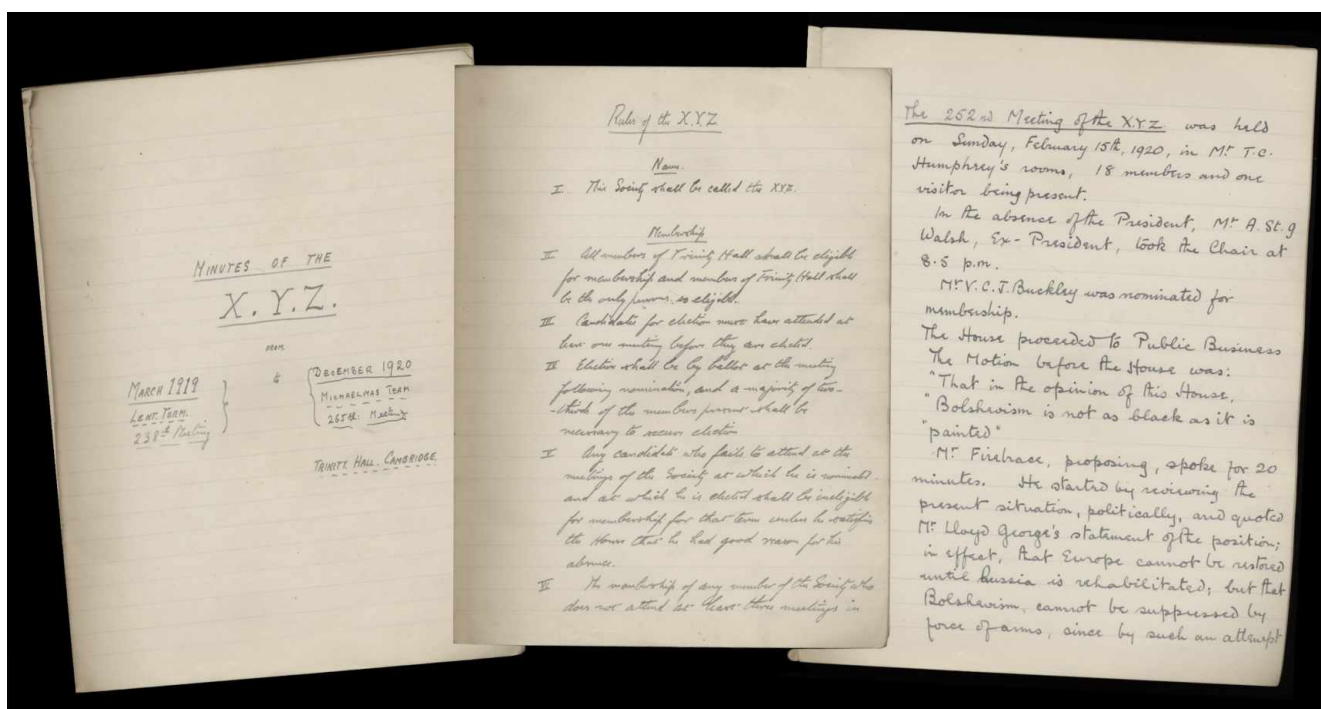 MINUTES OF THE
X.Y.Z.
FROM
MARCH 1919
LENT. TERM.
238th Meeting
to
DECEMBER 1920
MICHAELMAS TERM
265th Meeting
TRINITY HALL. CAMBRIDGE.
Rules of the X.Y.Z
Name.
I This Society shall be called the XYZ.
Membership
II All members of Trinity Hall shall be eligible
for membership and members of Trinity Hall shall
be the only persons so eligible.
III Candidates for election must have attended at
least one meeting before they are elected.
IV Election shall be by ballot at the meeting
following nomination, and a majority of two-
-thirds of the members present shall be
necessary to secure election
V Any candidate who fails to attend at the
meetings of the Society at which he is nominated
and at which he is elected shall be ineligible
for membership for that term unless he satisfies
the House that he had good reason for his
absence.
VI The membership of any member of the Society who
does not attend at least three meetings in
The 252nd Meeting of the X.Y.Z. was held
on Sunday, February 15th, 1920, in Mr T.C.
Humphrey's rooms, 18 members and one
visitor being present.
In the absence of the President, Mr A. St. G
Walsh, Ex-President, took the Chair at
8.5 p.m.
Mr V.C.J. Buckley was nominated for
membership.
The House proceeded to Public Business
The Motion before the House was:
"That in the opinion of this House,
"Bolshevism is not as black as it is
"painted"
Mr Firebrace, proposing, spoke for 20
minutes. He started by reviewing the
present situation, politically, and quoted
Mr Lloyd George's statement of the position;
in effect, that Europe cannot be restored
until Russia is rehabilitated; but that
Bolshevism, cannot be suppressed by
force of arms, since by such an attempt